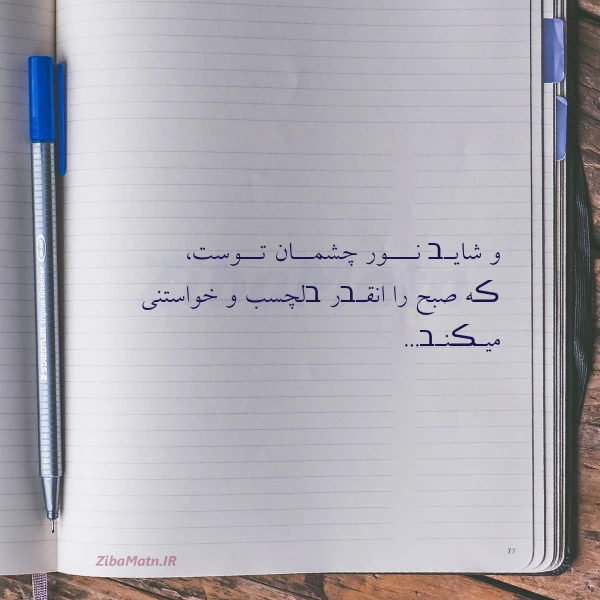 و شایـد نـــور چشمـــان تـــوست،
که صبح را انقـدر دلچسب و خواستنی
میـکنـد...
77
ZibaMatn.IR